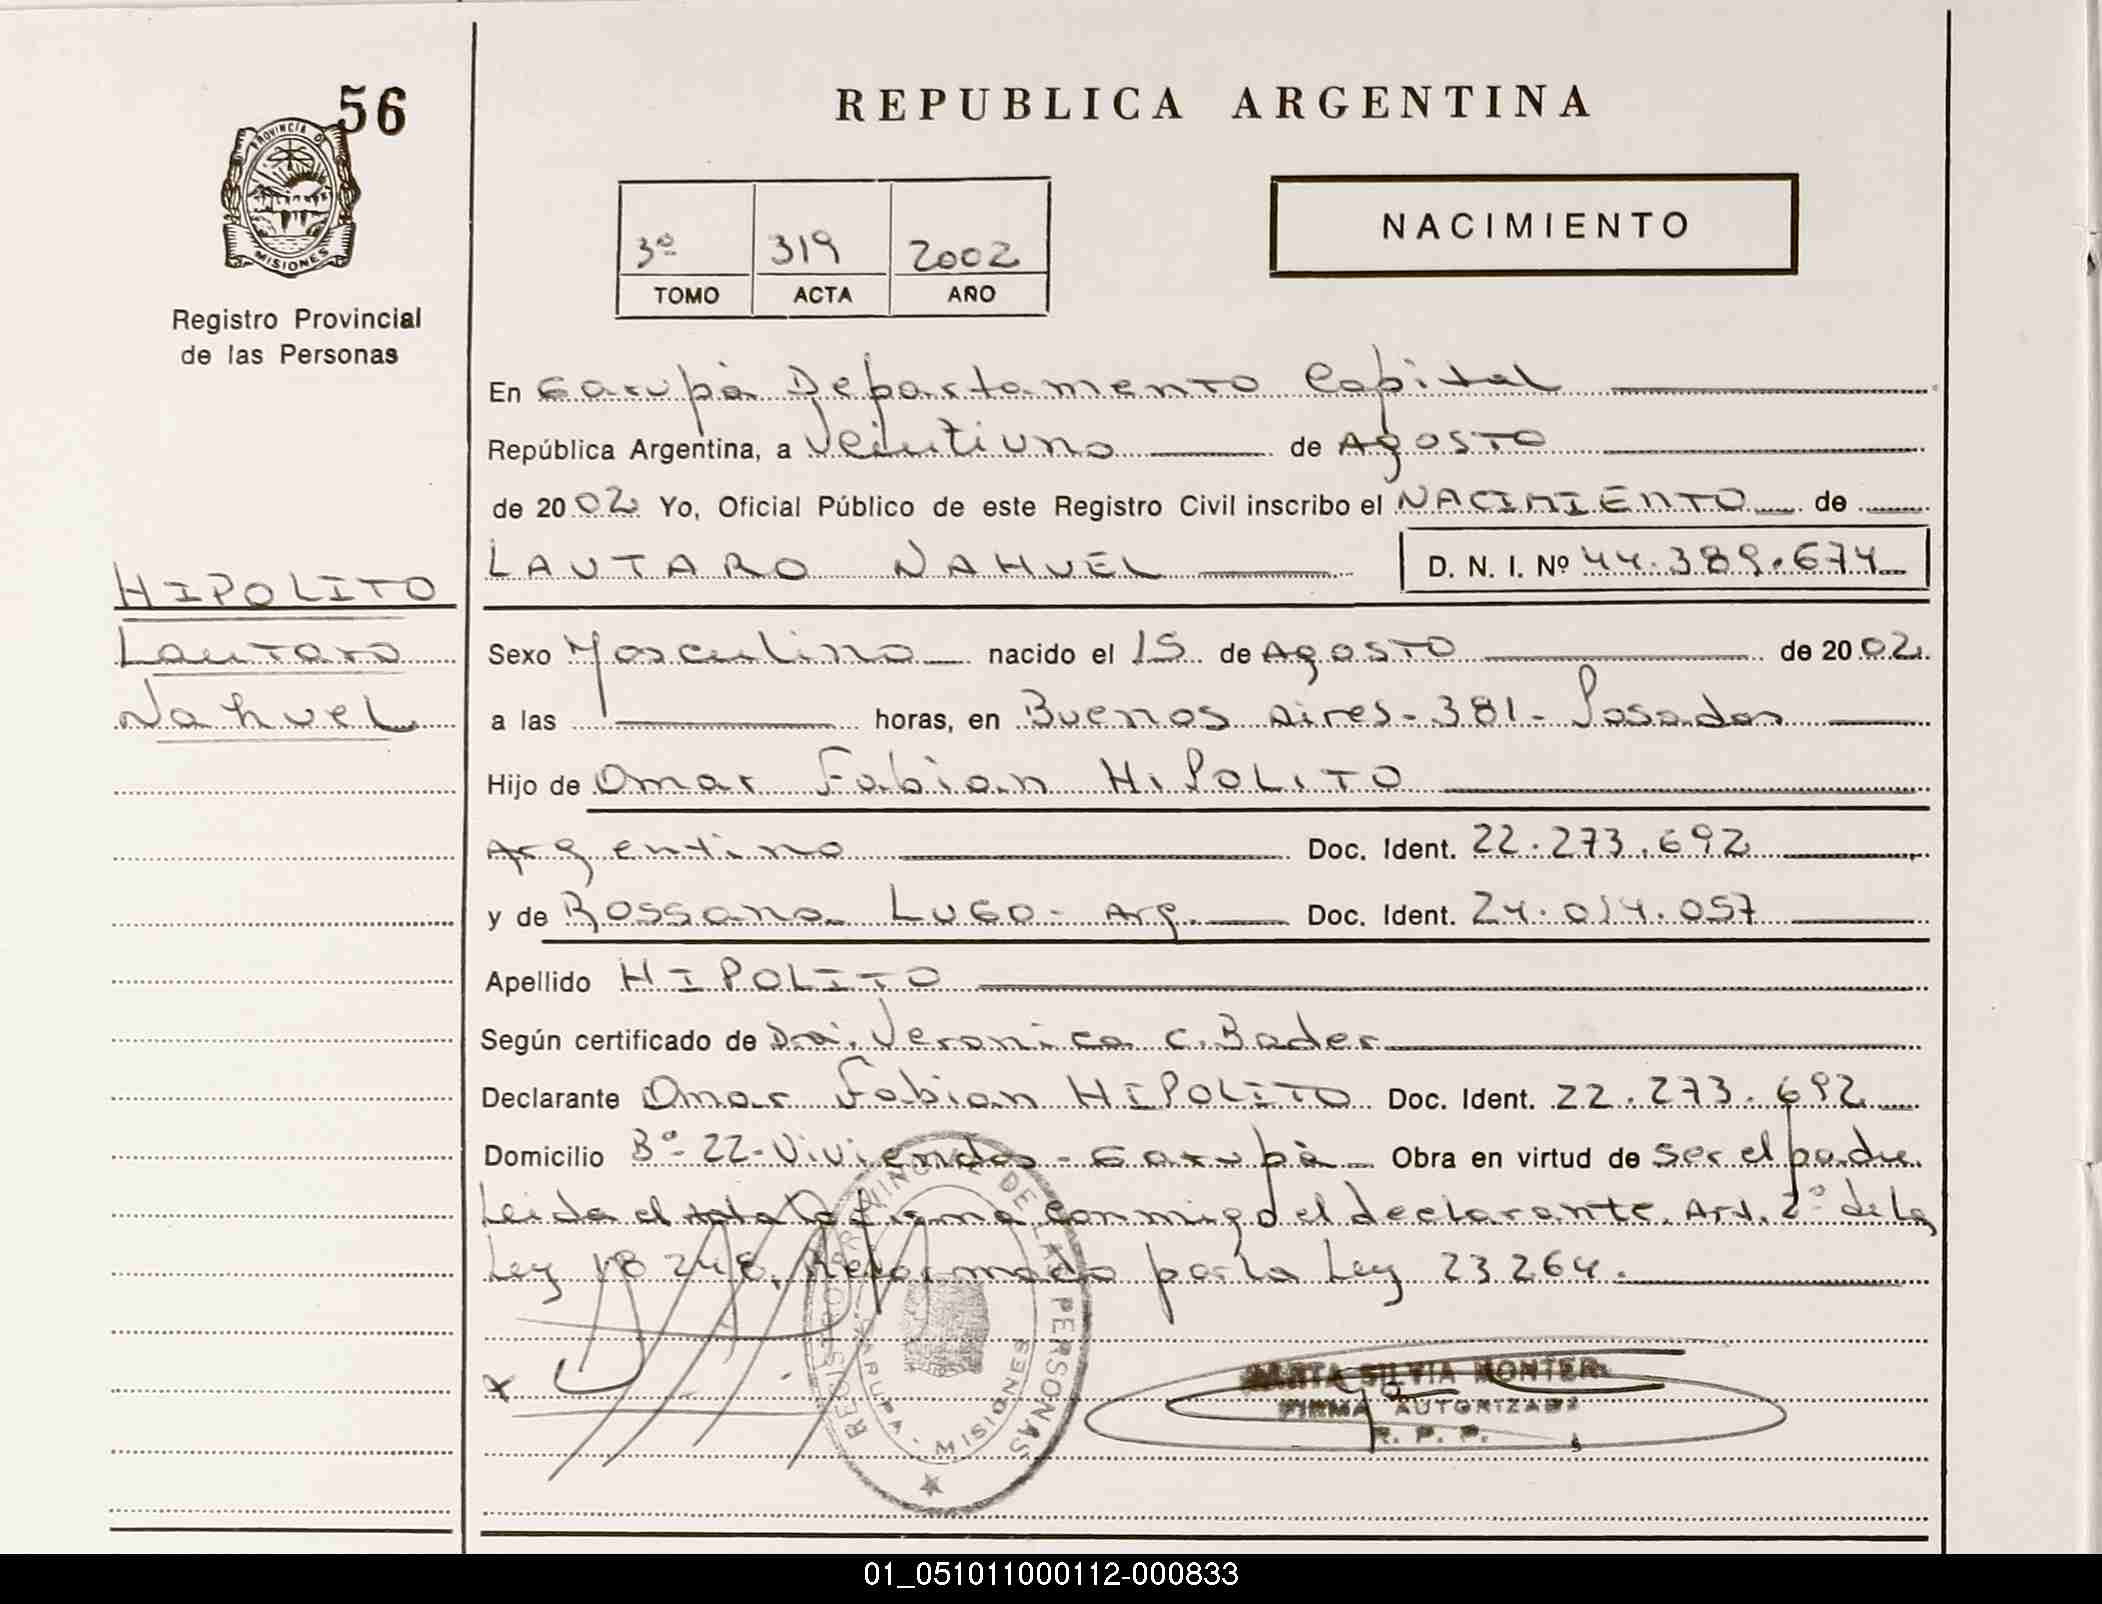 56
PROVINCIA DE
MISIONES
Registro Provincial
de las Personas
HIPOLITO
Lautaro
Nahuel
REPUBLICA ARGENTINA
3º 319 2002
TOMO ACTA AÑO
NACIMIENTO
En Garupà Departamento Capital
República Argentina, a Veintiuno de Agosto
de 2002 Yo, Oficial Público de este Registro Civil inscribo el NACIMIENTO de
LAUTARO NAHUEL D. N. I. Nº 44.389.674
Sexo Masculino nacido el 15 de Agosto de 2002
a las horas, en Buenos Aires - 381 - Posadas
Hijo de Omar Fabian HIPOLITO
Argentino Doc. Ident. 22.273.692
y de Rossana LUGO - Arg. Doc. Ident. 24.014.057
Apellido HIPOLITO
Según certificado de Dra. Veronica C. Bader
Declarante Omar Fabian HIPOLITO Doc. Ident. 22.273.692
Domicilio Bº - 22 - Viviendas - Garupà Obra en virtud de ser el padre
Leida el Acta la firma conmigo el declarante. Art. 2º de la
Ley 18248, Reformado por la Ley 23264.
x
REGISTRO PROVINCIAL DE LAS PERSONAS
GARUPA - MISIONES
SILVIA
FIRMA AUTORIZADA
R. P. P.
01_051011000112-000833